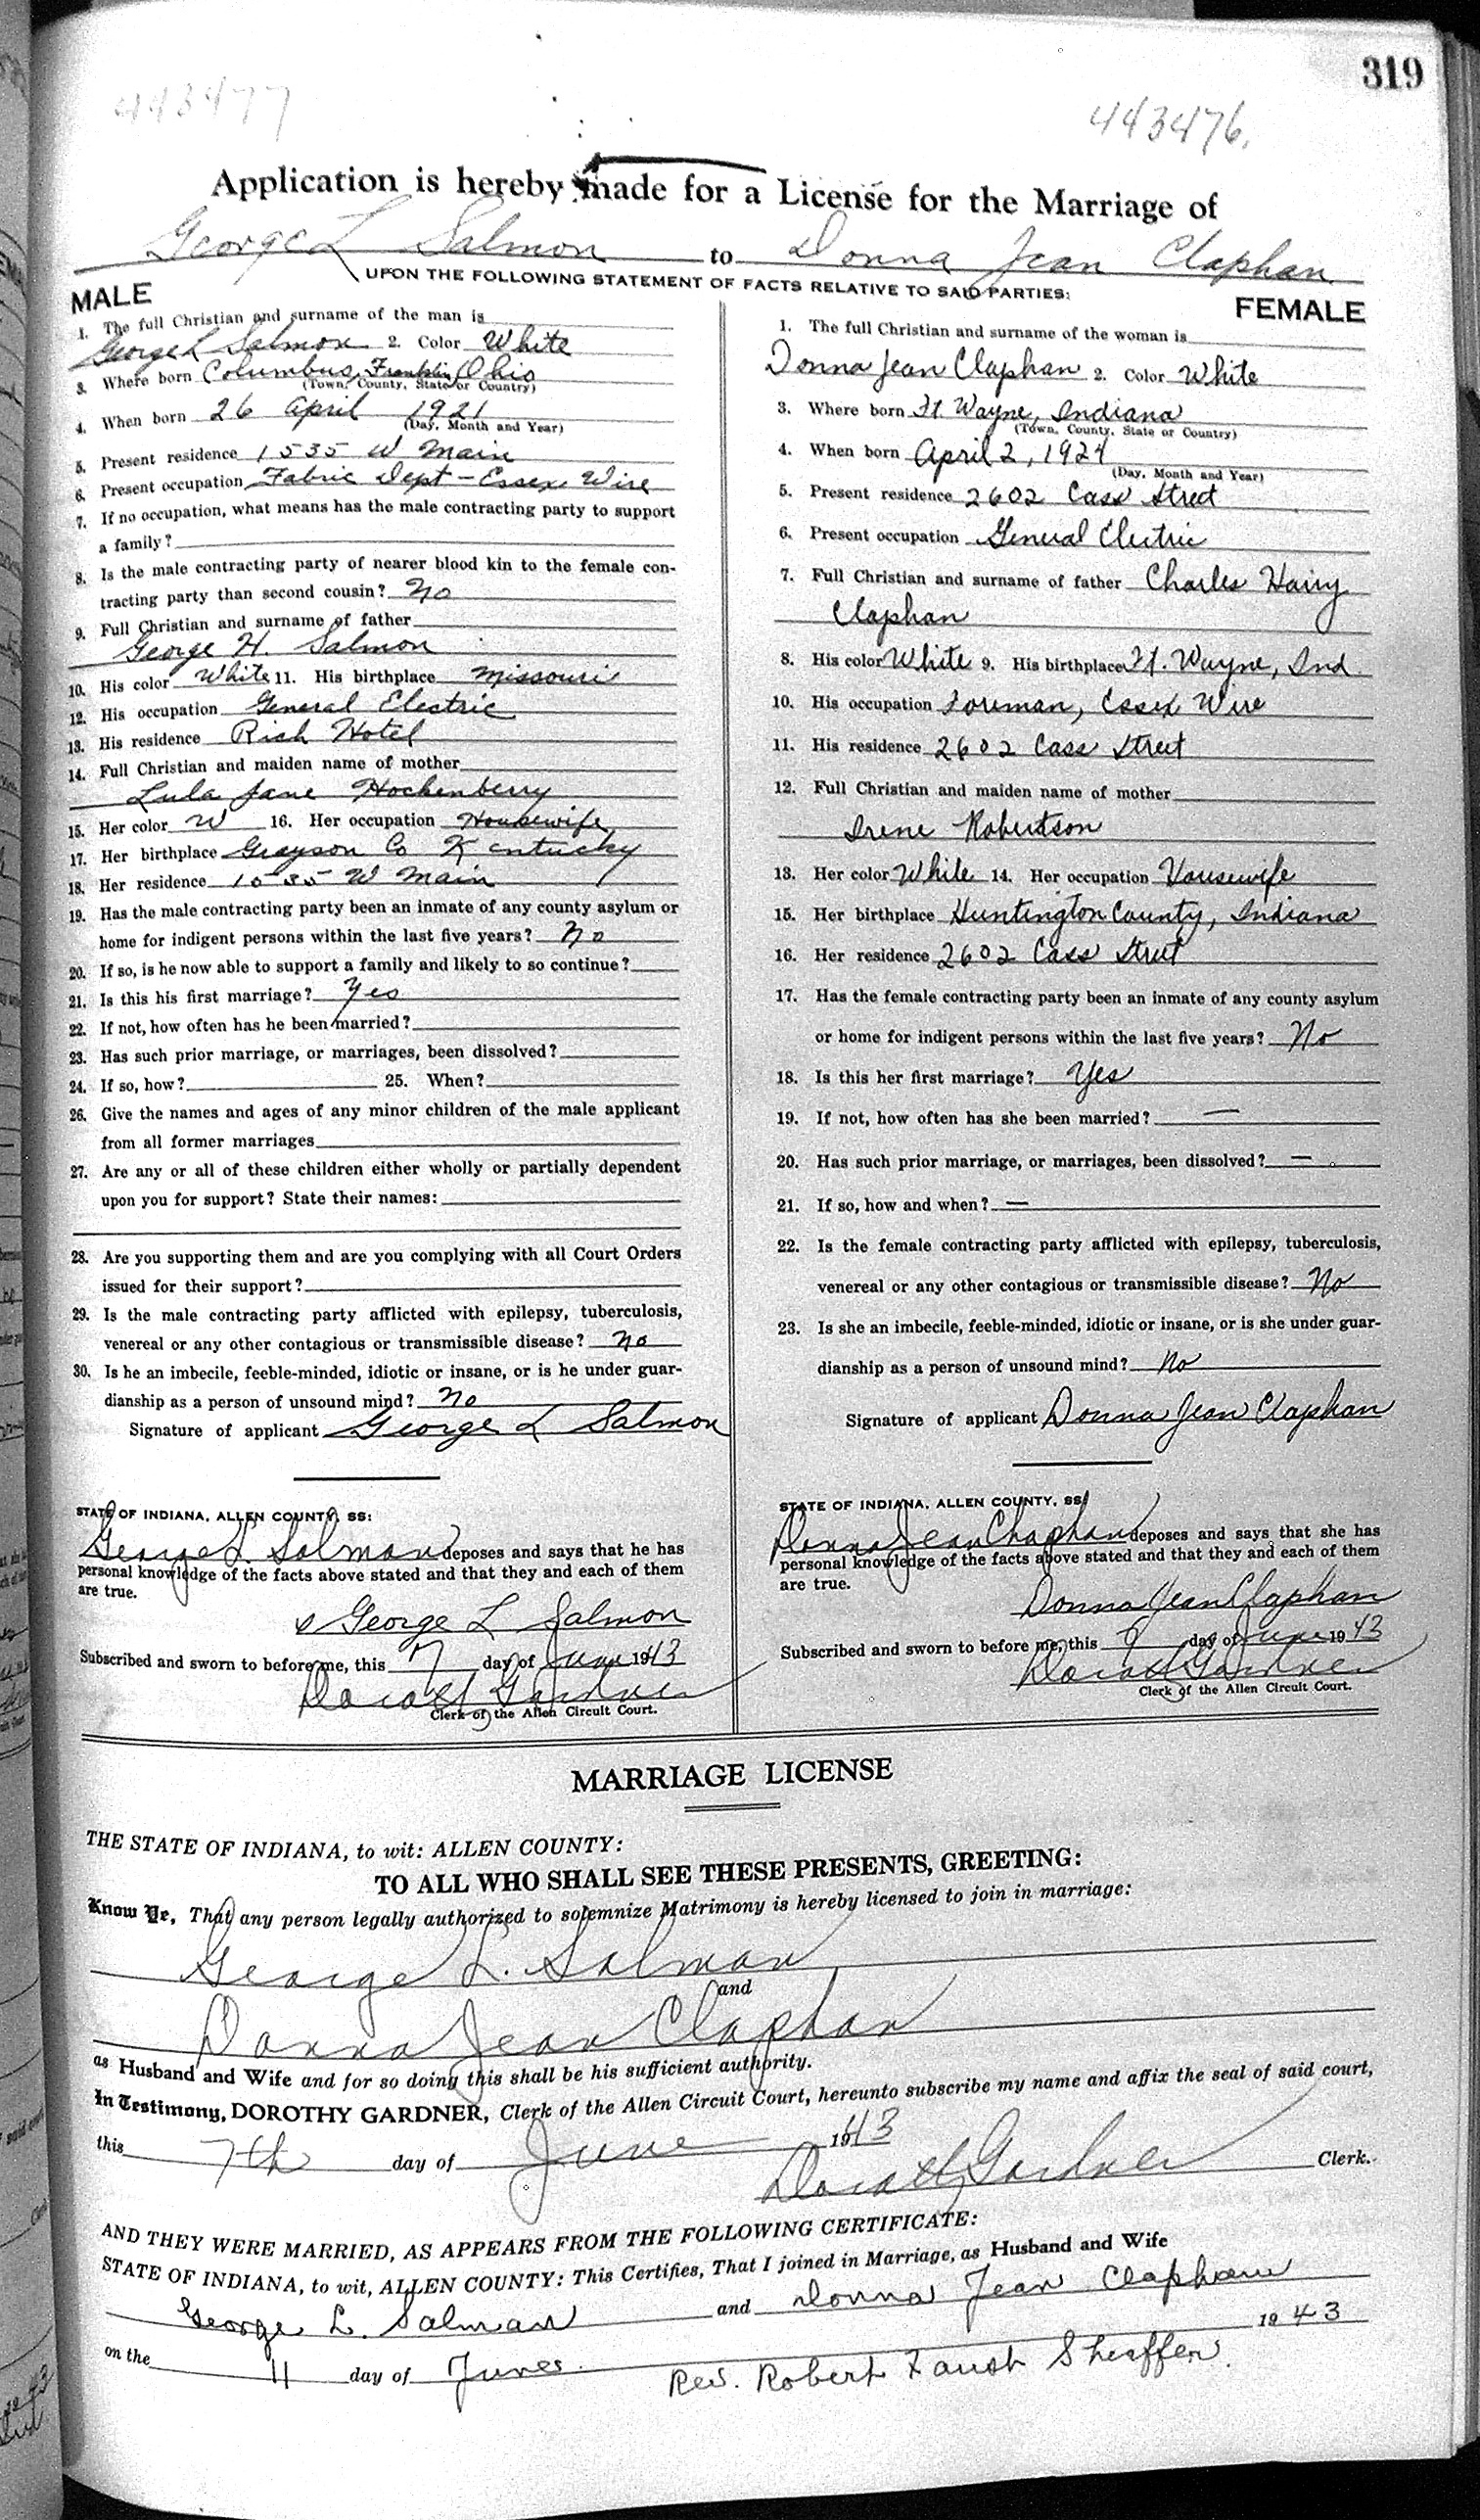 319
443477
443476.
Application is hereby made for a License for the Marriage of
George L Salmon to Donna Jean Claphan
UPON THE FOLLOWING STATEMENT OF FACTS RELATIVE TO SAID PARTIES:
MALE
1. The full Christian and surname of the man is
George L Salmon 2. Color White
3. Where born Columbus, Franklin, Ohio
(Town, County, State or Country)
4. When born 26 April 1921
(Day, Month and Year)
5. Present residence 1535 W Main
6. Present occupation Fabric Dept - Essex Wire
7. If no occupation, what means has the male contracting party to support
a family?
8. Is the male contracting party of nearer blood kin to the female con-
tracting party than second cousin? No
9. Full Christian and surname of father
George H. Salmon
10. His color White 11. His birthplace Missouri
12. His occupation General Electric
13. His residence Rich Hotel
14. Full Christian and maiden name of mother
Lula Jane Hockenberry
15. Her color W 16. Her occupation Housewife
17. Her birthplace Grayson Co Kentucky
18. Her residence 1535 W Main
19. Has the male contracting party been an inmate of any county asylum or
home for indigent persons within the last five years? No
20. If so, is he now able to support a family and likely to so continue?
21. Is this his first marriage? Yes
22. If not, how often has he been married?
23. Has such prior marriage, or marriages, been dissolved?
24. If so, how? 25. When?
26. Give the names and ages of any minor children of the male applicant
from all former marriages
27. Are any or all of these children either wholly or partially dependent
upon you for support? State their names:
28. Are you supporting them and are you complying with all Court Orders
issued for their support?
29. Is the male contracting party afflicted with epilepsy, tuberculosis,
venereal or any other contagious or transmissible disease? No
30. Is he an imbecile, feeble-minded, idiotic or insane, or is he under guar-
dianship as a person of unsound mind? No
Signature of applicant George L Salmon
STATE OF INDIANA, ALLEN COUNTY, SS:
George L. Salmon deposes and says that he has
personal knowledge of the facts above stated and that they and each of them
are true.
George L Salmon
Subscribed and sworn to before me, this 7 day of June 1943
Dorothy Gardner
Clerk of the Allen Circuit Court.
FEMALE
1. The full Christian and surname of the woman is
Donna Jean Claphan 2. Color White
3. Where born Ft. Wayne, Indiana
(Town, County, State or Country)
4. When born April 2, 1924
(Day, Month and Year)
5. Present residence 2602 Cass Street
6. Present occupation General Electric
7. Full Christian and surname of father Charles Harry
Claphan
8. His color White 9. His birthplace Ft. Wayne, Ind.
10. His occupation Foreman, Essex Wire
11. His residence 2602 Cass Street
12. Full Christian and maiden name of mother
Irene Robertson
13. Her color White 14. Her occupation Housewife
15. Her birthplace Huntington County, Indiana
16. Her residence 2602 Cass Street
17. Has the female contracting party been an inmate of any county asylum
or home for indigent persons within the last five years? No
18. Is this her first marriage? Yes
19. If not, how often has she been married? —
20. Has such prior marriage, or marriages, been dissolved? —
21. If so, how and when? —
22. Is the female contracting party afflicted with epilepsy, tuberculosis,
venereal or any other contagious or transmissible disease? No
23. Is she an imbecile, feeble-minded, idiotic or insane, or is she under guar-
dianship as a person of unsound mind? No
Signature of applicant Donna Jean Claphan
STATE OF INDIANA, ALLEN COUNTY, SS:
Donna Jean Claphan deposes and says that she has
personal knowledge of the facts above stated and that they and each of them
are true.
Donna Jean Claphan
Subscribed and sworn to before me, this 7 day of June 1943
Dorothy Gardner
Clerk of the Allen Circuit Court.
MARRIAGE LICENSE
THE STATE OF INDIANA, to wit: ALLEN COUNTY:
TO ALL WHO SHALL SEE THESE PRESENTS, GREETING:
Know Ye, That any person legally authorized to solemnize Matrimony is hereby licensed to join in marriage:
George L. Salmon
and
Donna Jean Claphan
as Husband and Wife and for so doing this shall be his sufficient authority.
In Testimony, DOROTHY GARDNER, Clerk of the Allen Circuit Court, hereunto subscribe my name and affix the seal of said court,
this 7th day of June 1943
Dorothy Gardner Clerk.
AND THEY WERE MARRIED, AS APPEARS FROM THE FOLLOWING CERTIFICATE:
STATE OF INDIANA, to wit, ALLEN COUNTY: This Certifies, That I joined in Marriage, as Husband and Wife
George L. Salmon and Donna Jean Claphan
on the 11 day of June 1943
Rev. Robert Faust Sheaffer.